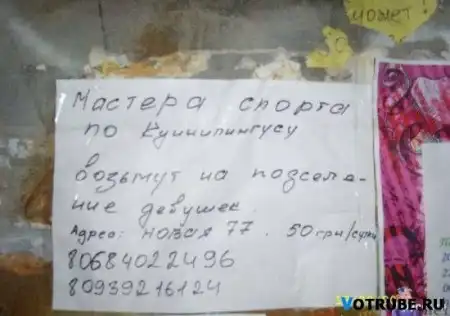 может!
Мастера спорта
по Куннилингусу
возьмут на подселе-
ние девушек.
Адрес: новая 77. 50грн/сутки
80684022496
80939216124
VOTRUBE.RU